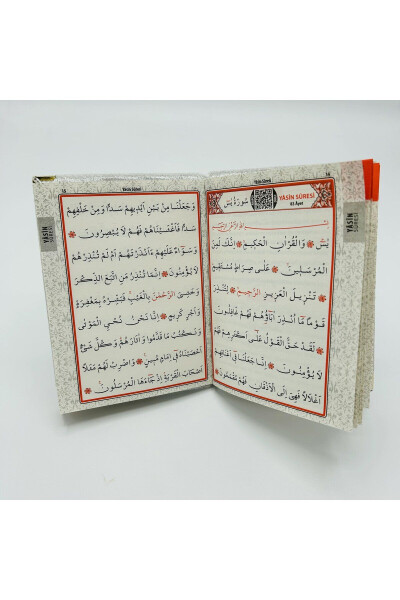 14
Yâsin Sûresi
سُورَةُ يٰسٓ
YÂSİN SÛRESİ
83 Âyet
YÂSÎN
SÛRESİ
يٰسٓ وَالْقُرْاٰنِ الْحَكٖيمِ اِنَّكَ لَمِنَ
الْمُرْسَلٖينَ عَلٰى صِرَاطٍ مُسْتَقٖيمٍ
تَنْزٖيلَ الْعَزٖيزِ الرَّحٖيمِ لِتُنْذِرَ
قَوْمًا مَٓا اُنْذِرَ اٰبَٓاؤُ۬هُمْ فَهُمْ غَافِلُونَ
لَقَدْ حَقَّ الْقَوْلُ عَلٰٓى اَكْثَرِهِمْ فَهُمْ
لَا يُؤْمِنُونَ اِنَّا جَعَلْنَا فٖٓي اَعْنَاقِهِمْ
اَغْلَالًا فَهِيَ اِلَى الْاَذْقَانِ فَهُمْ مُقْمَحُونَ
Yâsin Sûresi
YÂSÎN
وَجَعَلْنَا مِنْ بَيْنِ اَيْدٖيهِمْ سَدًّا وَمِنْ خَلْفِهِمْ
سَدًّا فَاَغْشَيْنَاهُمْ فَهُمْ لَا يُبْصِرُونَ
وَسَوَٓاءٌ عَلَيْهِمْ ءَاَنْذَرْتَهُمْ اَمْ لَمْ تُنْذِرْهُمْ
لَا يُؤْمِنُونَ اِنَّمَا تُنْذِرُ مَنِ اتَّبَعَ الذِّكْرَ
وَخَشِيَ الرَّحْمٰنَ بِالْغَيْبِ فَبَشِّرْهُ بِمَغْفِرَةٍ
وَاَجْرٍ كَرٖيمٍ اِنَّا نَحْنُ نُحْيِي الْمَوْتٰى
وَنَكْتُبُ مَا قَدَّمُوا وَاٰثَارَهُمْ وَكُلَّ شَيْءٍ
اَحْصَيْنَاهُ فٖٓي اِمَامٍ مُبٖينٍ وَاضْرِبْ لَهُمْ مَثَلًا
اَصْحَابَ الْقَرْيَةِ اِذْ جَٓاءَهَا الْمُرْسَلُونَ